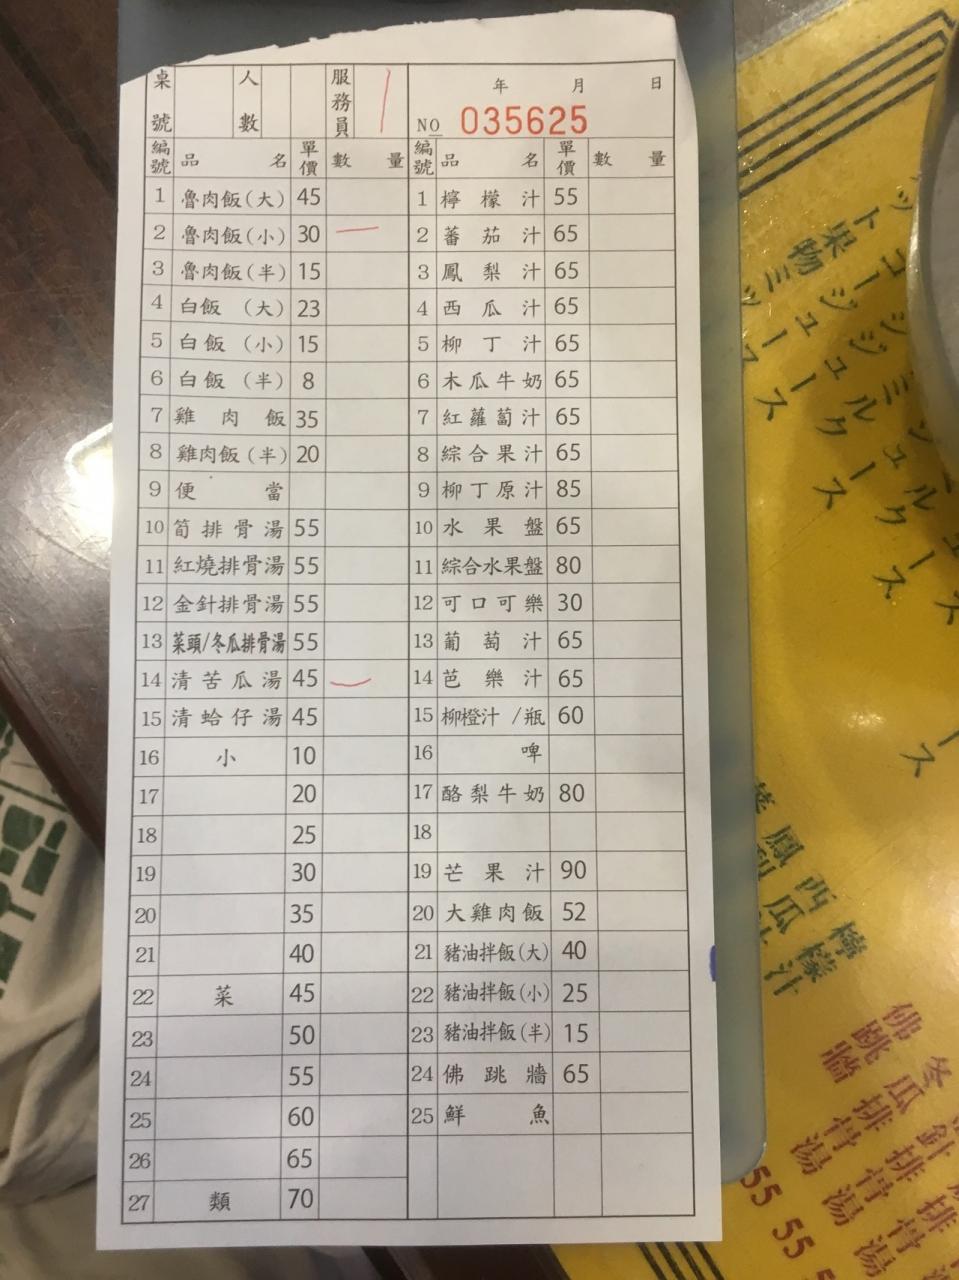 桌號 人數 服務員 年 月 日
NO 035625
編號 品名 單價 數量 編號 品名 單價 數量
1 魯肉飯(大) 45 1 檸檬汁 55
2 魯肉飯(小) 30 一 2 蕃茄汁 65
3 魯肉飯(半) 15 3 鳳梨汁 65
4 白飯(大) 23 4 西瓜汁 65
5 白飯(小) 15 5 柳丁汁 65
6 白飯(半) 8 6 木瓜牛奶 65
7 雞肉飯 35 7 紅蘿蔔汁 65
8 雞肉飯(半) 20 8 綜合果汁 65
9 便當 9 柳丁原汁 85
10 筍排骨湯 55 10 水果盤 65
11 紅燒排骨湯 55 11 綜合水果盤 80
12 金針排骨湯 55 12 可口可樂 30
13 菜頭/冬瓜排骨湯 55 13 葡萄汁 65
14 清苦瓜湯 45 一 14 芭樂汁 65
15 清蛤仔湯 45 15 柳橙汁/瓶 60
16 小 10 16 啤
17 20 17 酪梨牛奶 80
18 25 18
19 30 19 芒果汁 90
20 35 20 大雞肉飯 52
21 40 21 豬油拌飯(大) 40
22 菜 45 22 豬油拌飯(小) 25
23 50 23 豬油拌飯(半) 15
24 55 24 佛跳牆 65
25 60 25 鮮魚
26 65
27 類 70
檸檬汁
西瓜
鳳
佛跳牆
冬瓜排骨湯 55
針排骨湯 55
排骨湯 55